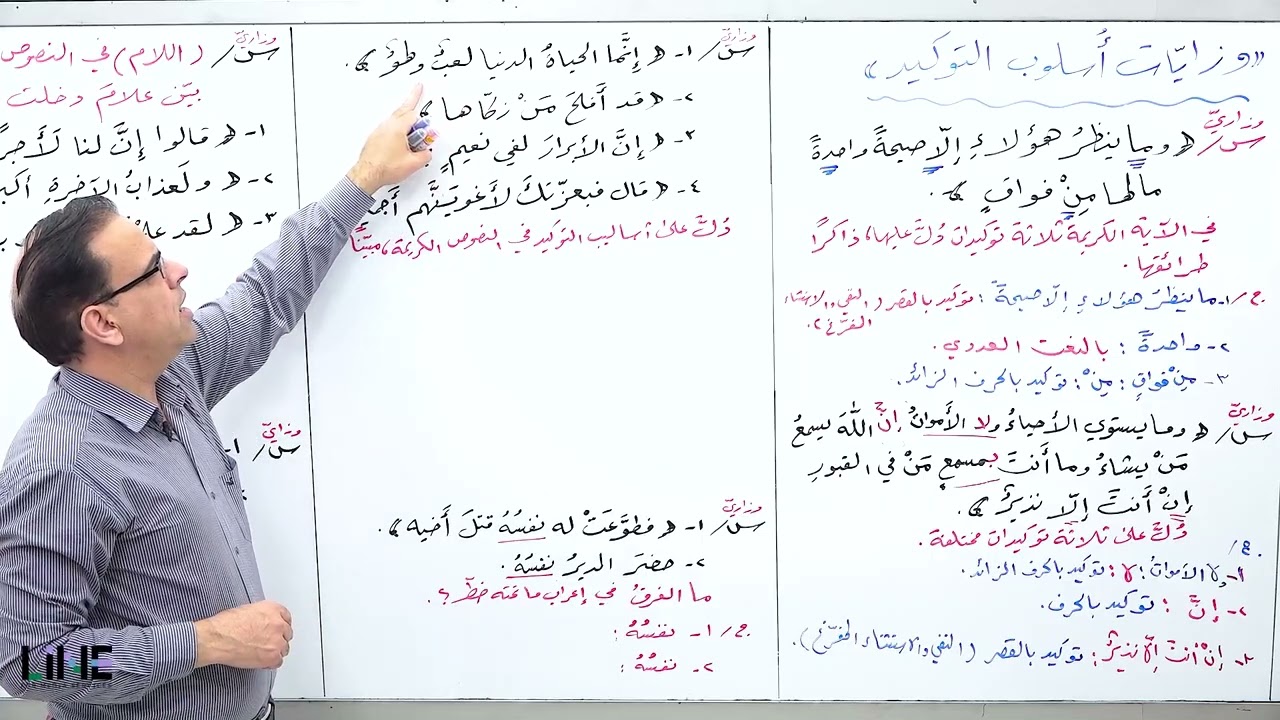 «وزاريّات أُسلوب التوكيد»
وزاريّ
س/ ﴿ وما ينظرُ هؤلاءِ إلّا صيحةً واحدةً
مالها مِنْ فواقٍ ﴾.
في الآية الكريمة ثلاثة توكيدات دُلَّ عليها، ذاكرًا
طرائقها.
ج/ ١- ما ينظرُ هؤلاءِ إلّا صيحةً : توكيد بالقصر ( النفي والاستثناء
المفرّغ ).
٢- واحدةً : بالنعت العددي.
٣- مِنْ فواقٍ : مِنْ : توكيد بالحرف الزائد.
وزاريّ
س/ ﴿ وما يستوي الأحياءُ ولا الأمواتُ إنَّ اللّهَ يسمعُ
مَنْ يشاءُ وما أنتَ بمسمعٍ مَنْ في القبورِ
إنْ أنتَ إلّا نذيرٌ ﴾.
دُلَّ على ثلاثة توكيدات مختلفة.
ج/
١- ولا الأمواتُ : لا : توكيد بالحرف الزائد.
٢- إنَّ : توكيد بالحرف.
٣- إنْ أنتَ إلّا نذيرٌ : توكيد بالقصر ( النفي والاستثناء المفرّغ ).
وزاريّ
س/ ١- ﴿ إنَّما الحياةُ الدنيا لعبٌ ولهوٌ ﴾.
٢- ﴿ قد أفلحَ مَنْ زكّاها ﴾
٣- ﴿ إنَّ الأبرارَ لفي نعيمٍ
٤- ﴿ قال فبعزّتكَ لأغوينَّهم
دُلَّ على أساليب التوكيد في النصوص الكريمة، مبيّنًا
وزاريّ
س/ ١- ﴿ فطوَّعَتْ له نفسُهُ قتلَ أخيه ﴾.
٢- حضرَ المديرُ نفسُهُ.
ما الفرقُ في إعراب ما تحته خطّ؟.
ج/ ١- نفسُهُ :
٢- نفسُهُ :
وزاريّ
س/ ( اللام ) في النصوص
بيّن علامَ دخلت
١- ﴿ قالوا إنَّ لنا لَأجرًا
٢- ﴿ ولَعذابُ الآخرةِ أكبر
٣- ﴿ لقد
وزاريّ
س/ ١-